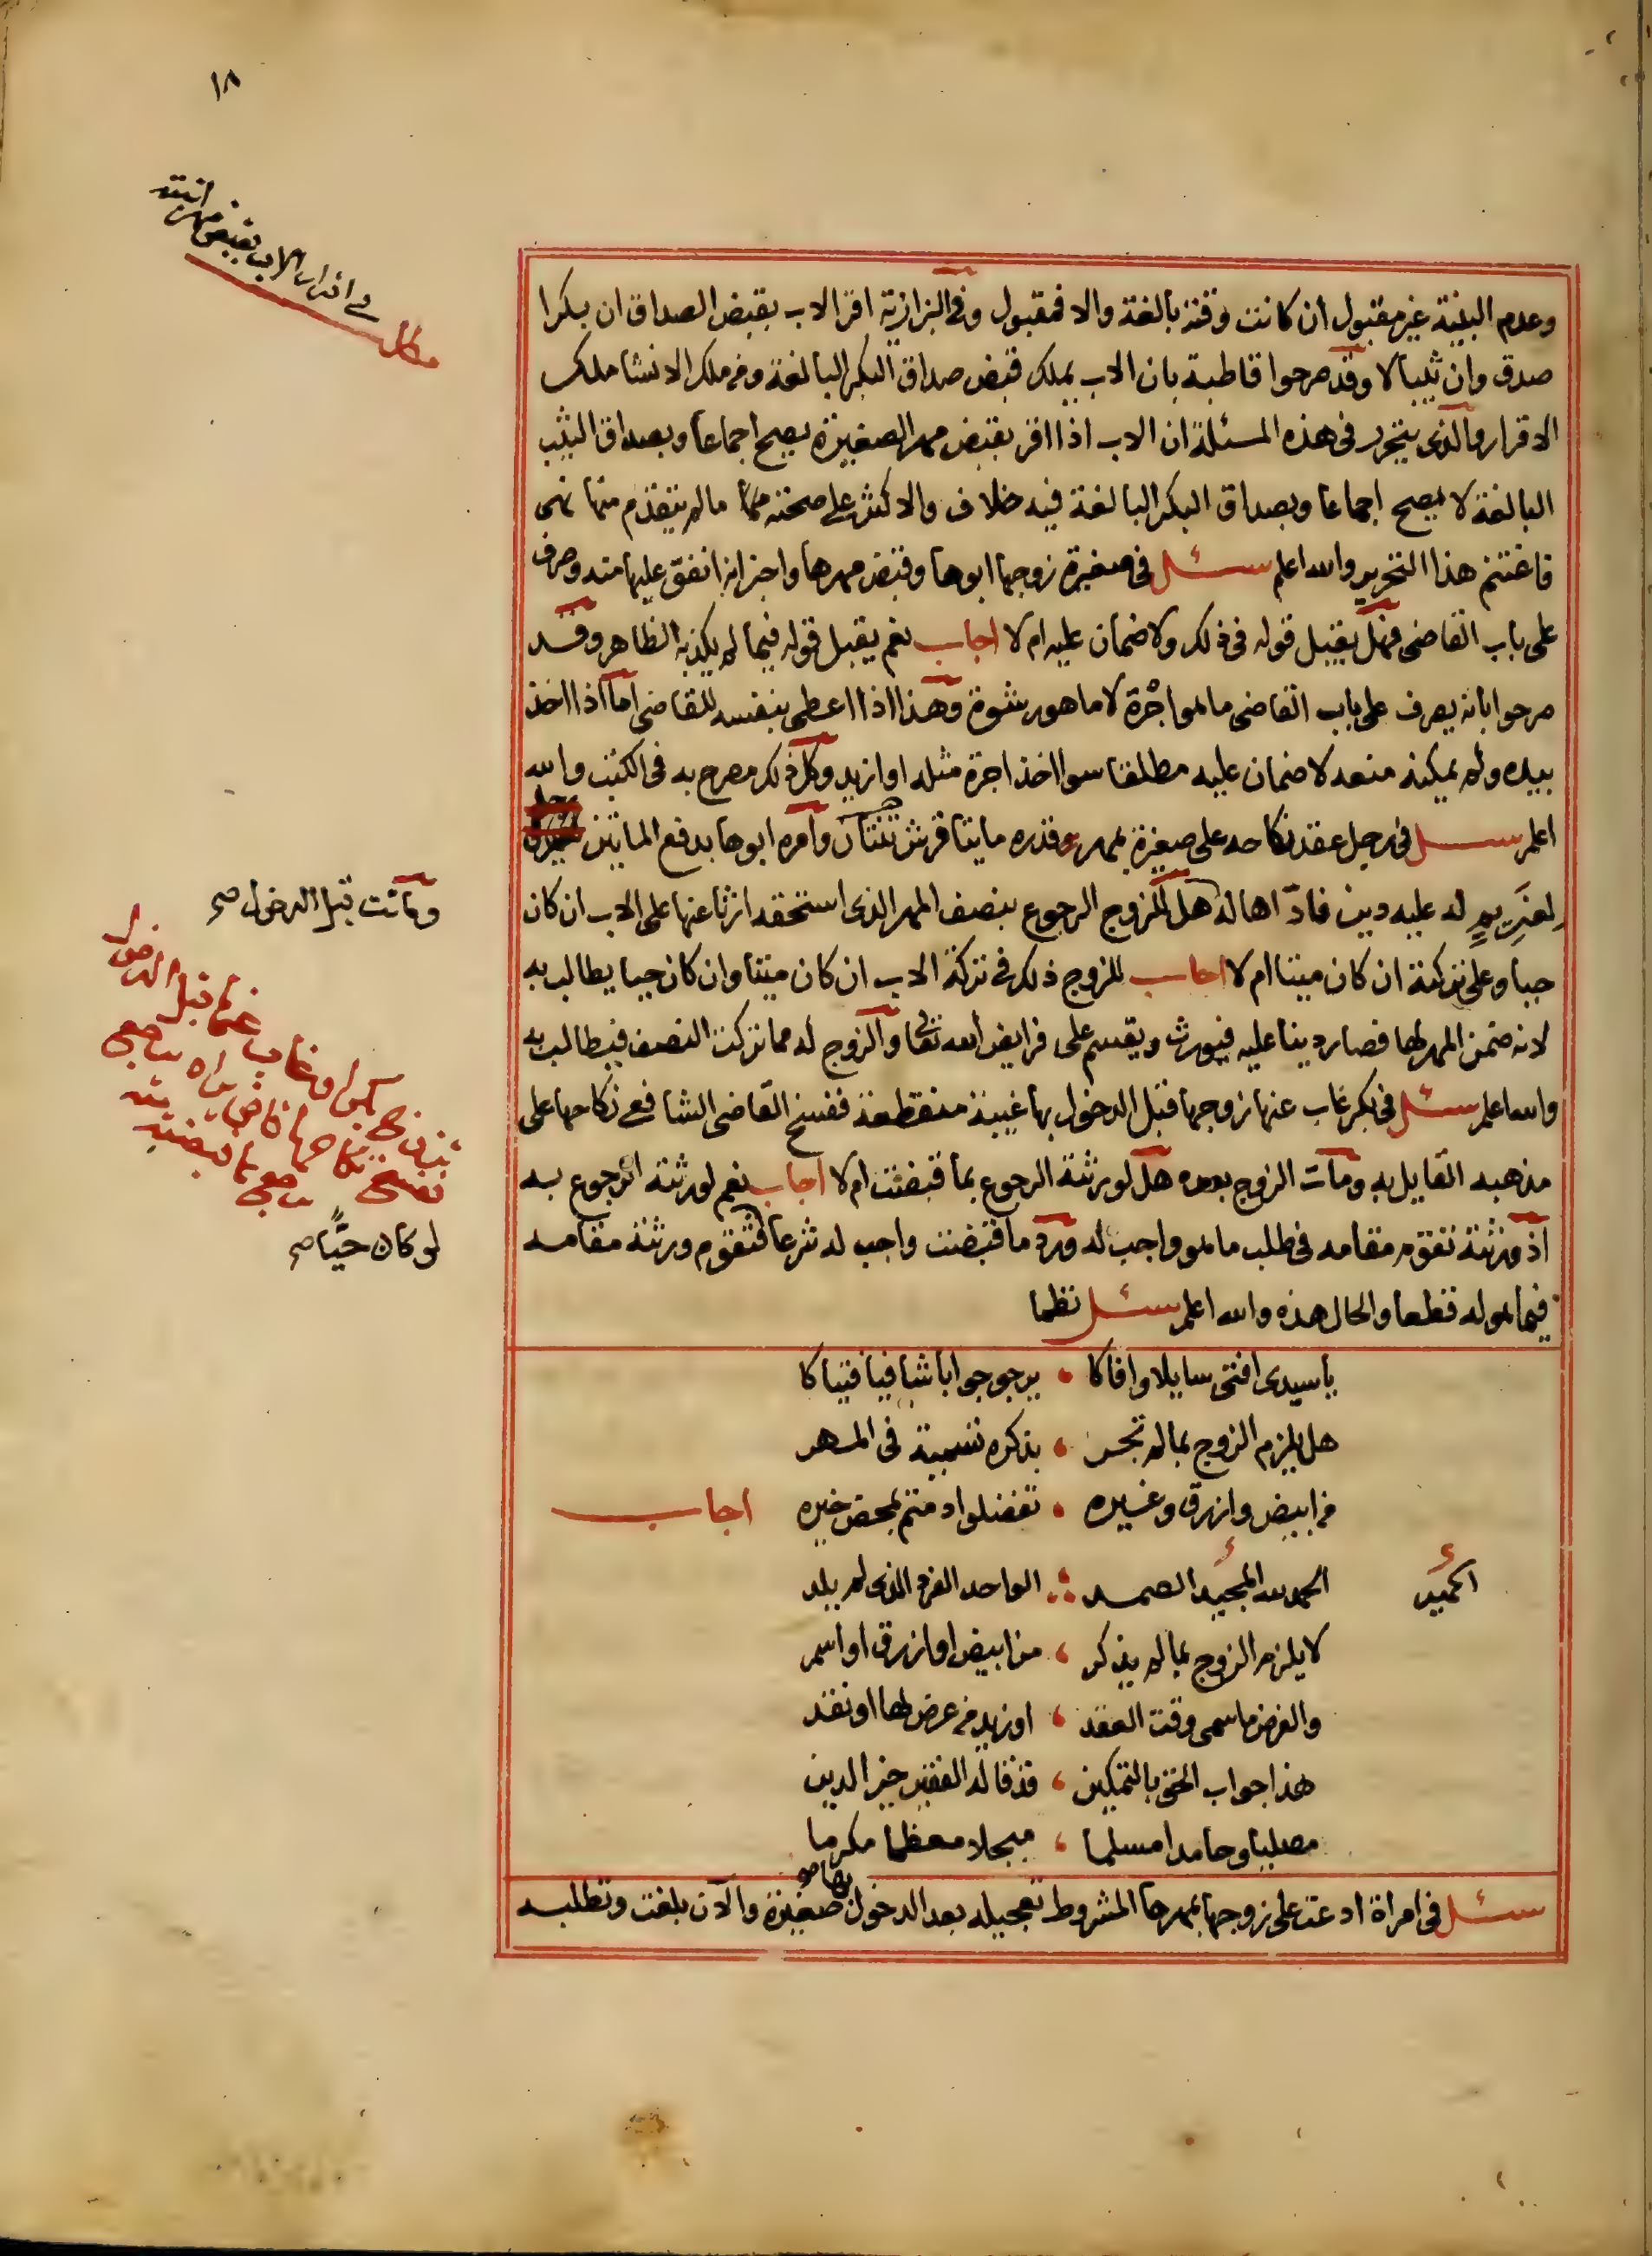 ١٨
مطلب في اقرار الاب بقبض مهر ابنته
وعدم البينة غير مقبول أن كانت وقته بالغة والا فمقبول وفي البزازية اقر الاب بقبض الصداق ان بكرا
صدق وان ثيبا لا وقد صرحوا قاطبة بان الاب يملك قبض صداق البكر البالغة ومن ملك الانشا ملك
الاقرار والذي يتحرر في هذه المسئلة ان الاب اذا اقر بقبض مهر الصغيرة يصح اجماعا وبصداق الثيب
البالغة لا يصح اجماعا وبصداق البكر البالغة فيه خلاف والاكثر على صحته مما ما لم يتقدم منها نهى
فاغتنم هذا التحرير والله اعلم سئل في صغيرة زوجها ابوها وقبض مهرها واخبر انه انفق عليها منه وصرف
على باب القاضي فهل يقبل قوله في ذلك ولا ضمان عليه ام لا اجاب نعم يقبل قوله فيما لم يكذبه الظاهر وقد
صرحوا بانه يصرف على باب القاضي ما هو اجرة لا ما هو رشوة وهذا اذا اعطى بنفسه للقاضي اما اذا اخذ
بيده ولم يمكنه منعه لا ضمان عليه مطلقا سوا اخذ اجرة مثله او ازيد وكل ذلك مصرح به في الكتب والله
اعلم سئل في رجل عقد نكاحه على صغيرة بمهر وقدره مايتا قرش ثنتان وامره ابوها بدفع المايتين
لغريم له عليه دين فاداها له هل للزوج الرجوع بنصف المهر الذي استحقه ارثا عنها على الاب ان كان
وماتت قبل الدخول صح
حيا وعلى تركته ان كان ميتا ام لا اجاب للزوج ذلك في تركة الاب ان كان ميتا وان كان حيا يطالب به
لانه ضمن المهر لها فصار دينا عليه فيورث ويقسم على فرايض الله تعالى والزوج له مما تركت النصف فيطالب به
والله اعلم سئل في بكر غاب عنها زوجها قبل الدخول بها غيبة منقطعة ففسخ القاضي الشافعي نكاحها على
مذهبه القايل به ومات الزوج بعده هل لورثته الرجوع بما قبضت ام لا اجاب نعم لورثته الرجوع به
لو كان حيًّا صح
اذ ورثته تقوم مقامه في طلب ما هو واجب له ورد ما قبضت واجب له شرعا فتقوم ورثته مقامه
فيما هو له قطعا والحال هذه والله اعلم سئل نظما
يا سيدي افتى سايلا وافاكا ، يرجو جوابا شافيا فتياكا
هل يلزم الزوج بما لم تجر ، بذكره تسمية في المهر
من ابيض وازرق وغيره ، تفضلوا دمتم لمحض خيره اجاب
الحمد لله المجيد الصمد ؛ الواحد الفرد الذي لم يلد
الحميد
لا يلزم الزوج بما لم يذكر ، من ابيض او ازرق او اسمر
والفرض ما سمى وقت العقد ، او زيد من عرض لها او نقد
هذا جواب الحق بالتمكين ، قد قاله الفقير خير الدين
مصليا وحامدا مسلما ، مبجلا معظما مكرما
سئل في امراة ادعت على زوجها بمهرها المشروط تعجيله بعد الدخول بها صح صغيرة والآن بلغت وتطلبه